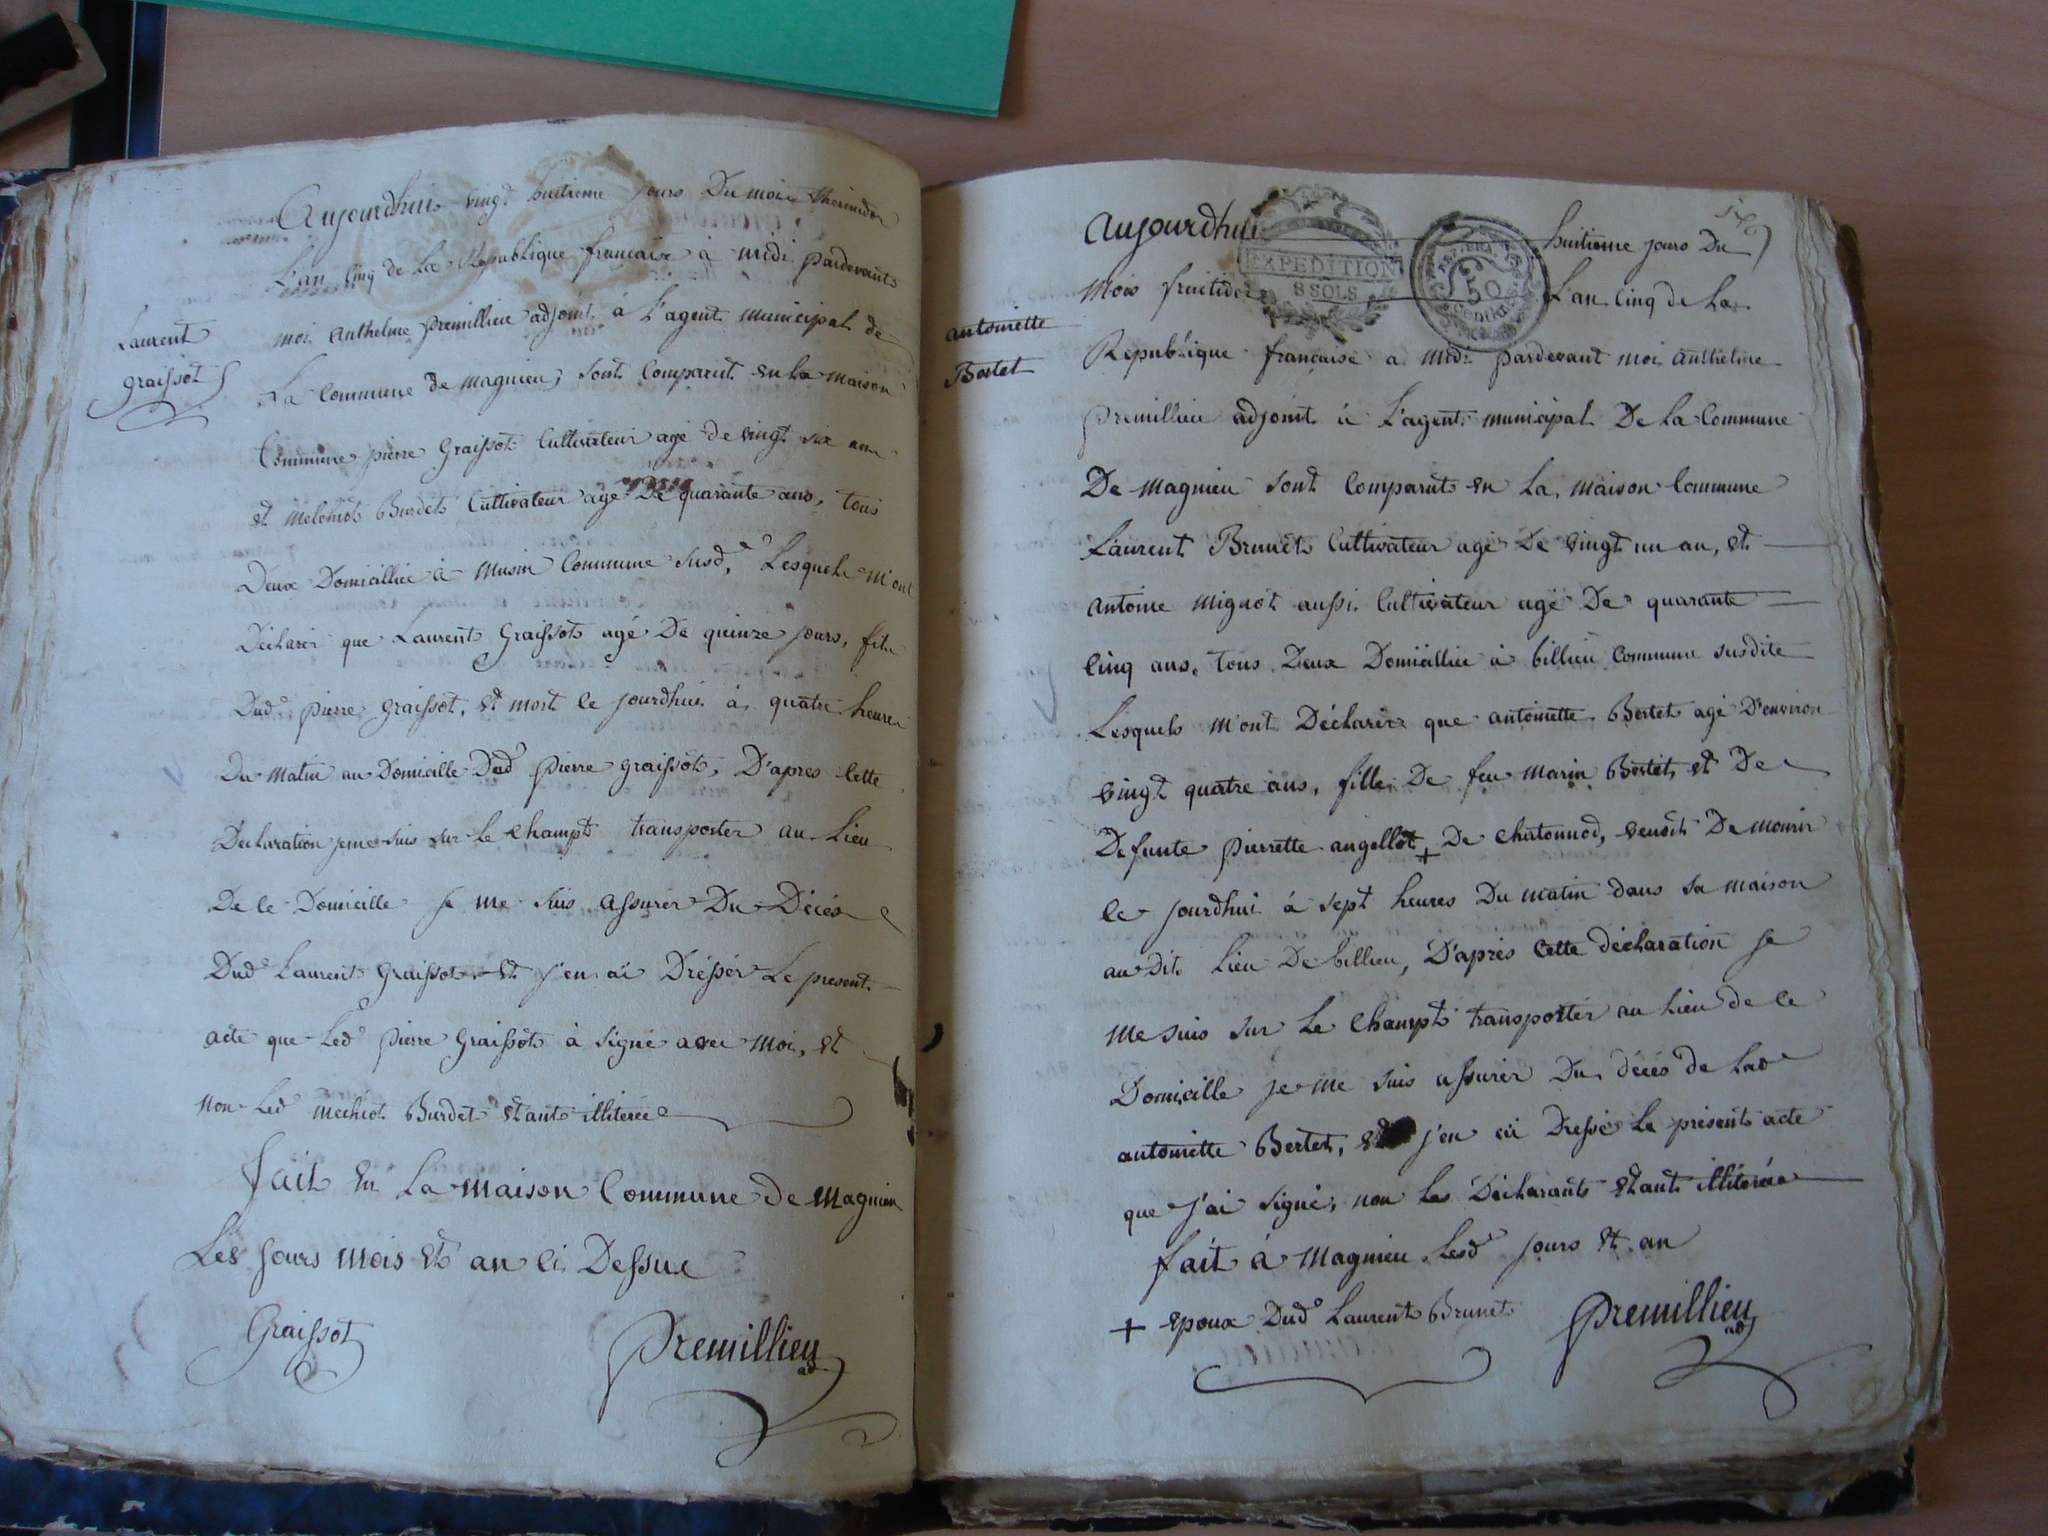 Aujourdhuis vingt huitieme jours Du mois thermidor
L'an cinq de la Republique francaise à midi pardevants
Laurent
Graissot
moi anthelme premillieu adjoint à L'agent municipal de
La Commune de magnieu, sont Comparut en La maison
Commune pierre Graissot Cultivateur agé de vingt six ans
et Burdet Cultivateur agé De quarante ans, tous
Deux Domicillié à musin Commune susd.e Lesquels m'ont
Déclarér que Laurent Graissot agé De quinze jours, fils
Dud.e pierre graissot, et mort ce jourdhui à quatre heures
Du matin au Domicille Dud.e pierre graissot, D'apres Cette
Déclaration je me suis sur Le Champt transporter au Lieu
De ce Domicille je me suis assurer Du Décés
Dud.e Laurent Graissot et j'en ai Dréssér Le present
acte que Led.e pierre Graissot à signé avec moi, et
non Led.e mechiot Burdet étant illiterée
fait En La maison Commune de magnieu
Les jours mois et an ci Dessus
Graissot Premillieu ad
576
Aujourdhui huitieme jours Du
EXPEDITION
8 SOLS
50
Centim
mois fructidor L'an cinq de La
antoinette
Bertet
Republique française a midi pardevant moi anthelme
premillieu adjoint à L'agent municipal De La Commune
De magnieu sont Comparut en La maison Commune
Laurent Brunet Cultivateur agé De vingt un an, et
antoine mignot aussi Cultivateur agé De quarante
Cinq ans, tous Deux Domicillié à billieu Commune susdite
Lesquels m'ont Déclarér que antoinette Bertet agé D'environ
vingt quatre ans, fille De feu marin Bertet et De
Defunte pierrette angellot + De Chatonnod, venoit De mourir
ce jourdhui à sept heures Du matin dans sa maison
au Dit Lieu De billieu, D'aprés Cette déclaration je
me suis sur Le Champt transportér au Lieu de ce
Domicille je me suis assurér Du décés de Lad.e
antoinette Bertet, et j'en ai Dressé Le présent acte
que j'ai signé, non Les Déclarants étant illitérée
fait à magnieu Lesd.e jours et an
+ epoux Dud.e Laurent Brunet Premillieu ad